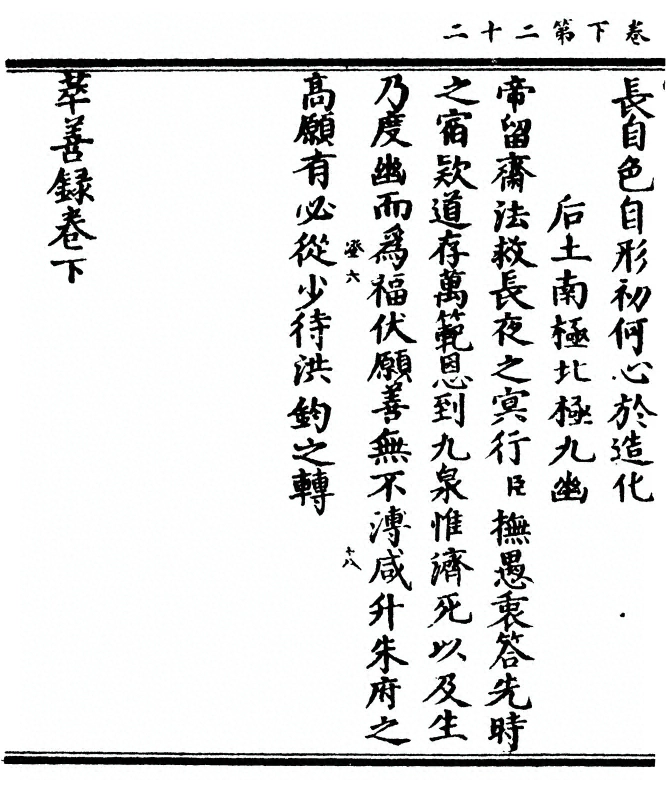 卷下第二十二
長自色自形初何心於造化
后土南極北極九幽
帝留齋法救長夜之㝠行臣撫愚衷答先時
之宿欵道存萬範恩到九泉惟濟死以及生
乃度幽而爲福伏願善無不溥咸升朱府之
六
十八
高願有必從少待洪鈞之轉
萃善録卷下